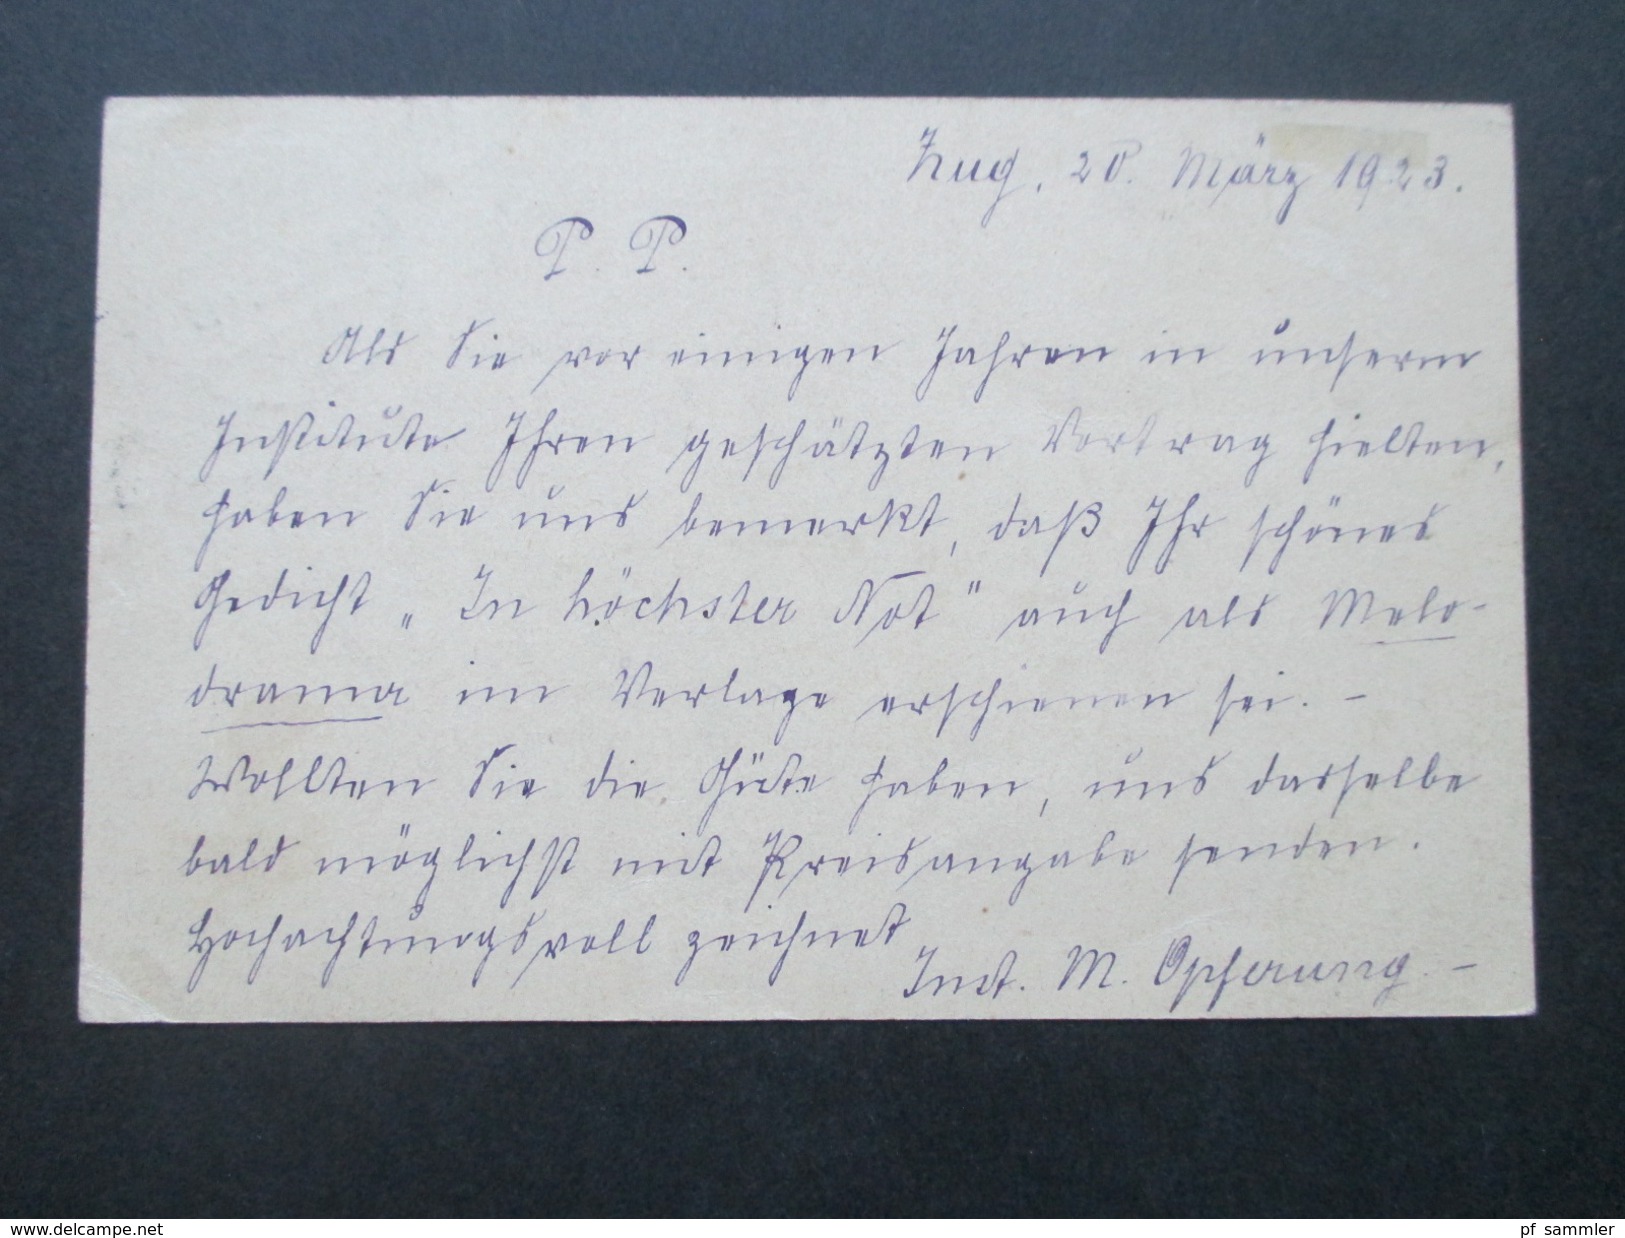 Zug, 20. März 1923.
P. P.
Als Sie vor einigen Jahren in unserm
Institute Ihren geschätzten Vortrag hielten,
haben Sie uns bemerkt, daß Ihr schönes
Gedicht „In höchster Not" auch als Melo-
drama im Verlage erschienen sei. –
Wollten Sie die Güte haben, uns dasselbe
bald möglichst mit Preisangabe senden.
Hochachtungsvoll zeichnet
Inst. M. Opferung. –
www.delcampe.net
pf_sammler